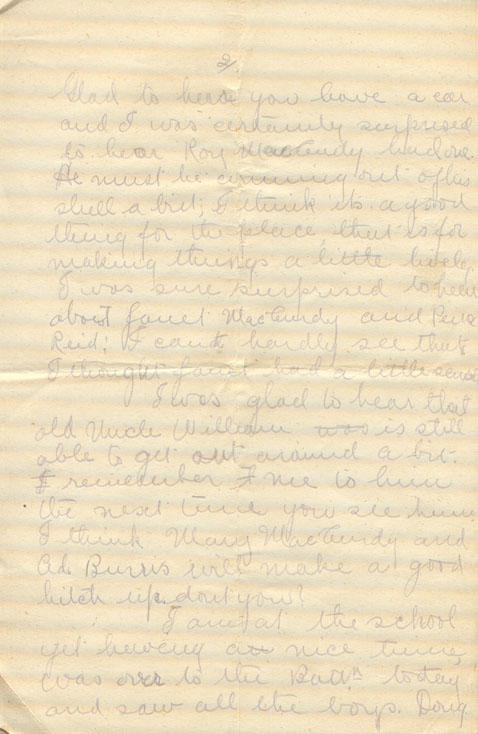 2/.
Glad to hear you have a car
and I was certainly surprised
to hear Roy MacCurdy had one.
He must be comming out of his
shell a bit; I think its a good
thing for the place, that is for
making things a little lively
I was sure surprised to hear
about Janet MacCurdy and
Reid; I cant hardly see that
I thought Janet had a little sense
I was glad to hear that
old Uncle William was is still
able to get out around a bit.
I remember me to him
the next time you see him
I think Mary MacCurdy and
Ad. Burris will make a good
hitch up. dont you?
I am at the school
yet haveing a nice time,
was over to the Battn today
and saw all the boys. Doug